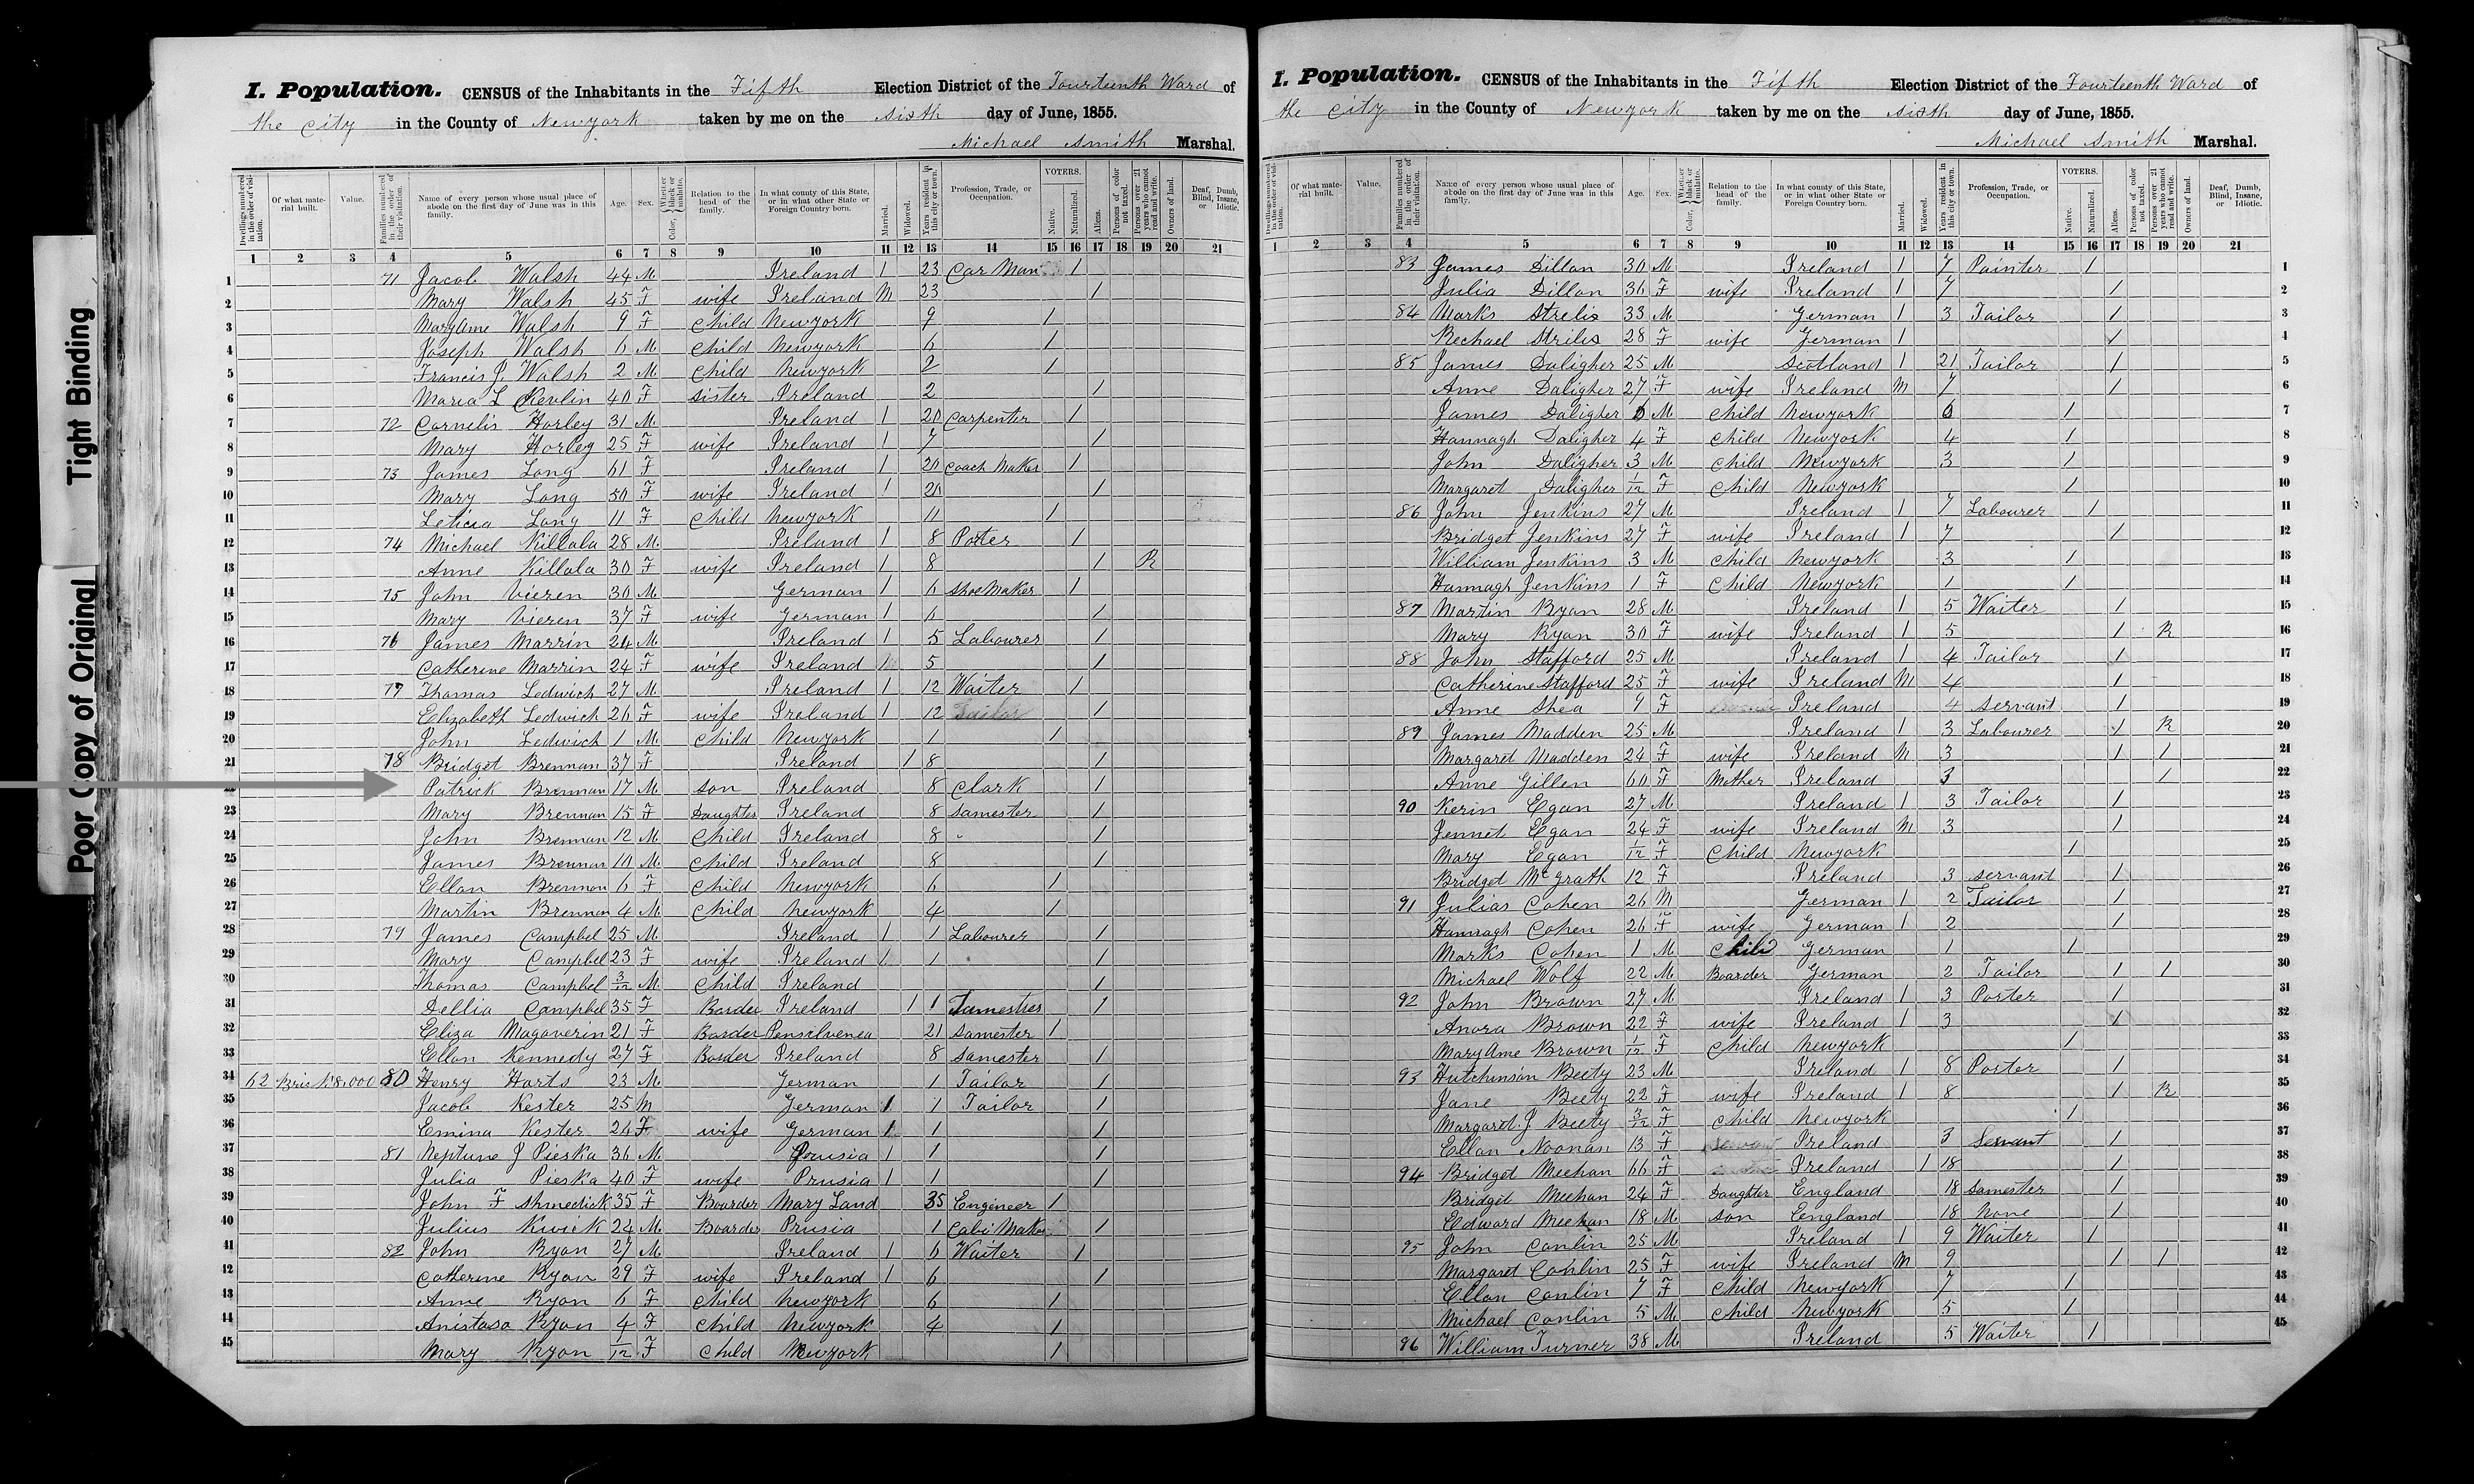 Tight Binding
Poor Copy of Original
I. Population. CENSUS of the Inhabitants in the Fifth Election District of the Fourteenth Ward of
the City in the County of Newyork taken by me on the sixth day of June, 1855.
Michael Smith Marshal.
Dwellings numbered in the order of visitation. Of what material built. Value. Families numbered in the order of their visitation. Name of every person whose usual place of abode on the first day of June was in this family. Age. Sex. Color, Whether black or mulatto. Relation to the head of the family. In what county of this State, or in what other State or Foreign Country born. Married. Widowed. Years resident in this city or town. Profession, Trade, or Occupation. VOTERS. Native. Naturalized. Aliens. Persons of color not taxed. Persons over 21 years who cannot read and write. Owners of land. Deaf, Dumb, Blind, Insane, or Idiotic.
1 2 3 4 5 6 7 8 9 10 11 12 13 14 15 16 17 18 19 20 21
1 71 Jacob Walsh 44 M Ireland 1 23 Car Man 1
2 Mary Walsh 45 F wife Ireland M 23 1
3 Mary Ame Walsh 9 F Child Newyork 9 1
4 Joseph Walsh 6 M Child Newyork 6 1
5 Francis J. Walsh 2 M Child Newyork 2 1
6 Maria L 40 F sister Ireland 2 1
7 72 Cornelis Horley 31 M Ireland 1 20 Carpenter 1
8 Mary Horley 25 F wife Ireland 1 7 1
9 73 James Long 61 F Ireland 1 20 Coach Maker 1
10 Mary Long 50 F wife Ireland 1 20 1
11 Leticia Long 11 F Child Newyork 11 1
12 74 Michael Killala 28 M Ireland 1 8 Poter 1
13 Anne Killala 30 F wife Ireland 1 8 1 R
14 75 John Vieren 30 M German 1 6 Shoe Maker 1
15 Mary Vieren 37 F wife German 1 6 1
16 76 James Marrin 24 M Ireland 1 5 Labourer 1
17 Catherine Marrin 24 F wife Ireland 1 5 1
18 77 Thomas Ledwich 27 M Ireland 1 12 Waiter 1
19 Elizabeth Ledwich 26 F wife Ireland 1 12 Tailor 1
20 John Ledwich 1 M Child Newyork 1 1
21 78 Bridget Brennan 37 F Ireland 1 8 1
Patrick Brennan 17 M son Ireland 8 Clark 1
23 Mary Brennan 15 F Daughter Ireland 8 Samester 1
24 John Brennan 12 M Child Ireland 8 1
25 James Brennan 10 M Child Ireland 8 1
26 Ellan Brennan 6 F Child Newyork 6 1
27 Martin Brennan 4 M Child Newyork 4 1
28 79 James Campbel 25 M Ireland 1 1 Labourer 1
29 Mary Campbel 23 F wife Ireland 1 1 1
30 Thomas Campbel 3/12 M Child Ireland 1
31 Dellia Campbel 35 F Border Ireland 1 1 Samestres 1
32 Eliza Magaverin 21 F Border Pensilvenea 21 Samester 1
33 Ellan Kennedy 27 F Border Ireland 8 Samester 1
34 62 Bric 18,000 80 Henry Harts 23 M German 1 Tailor 1
35 Jacob Kester 25 M German 1 1 Tailor 1
36 Emina Kester 24 F wife German 1 1 1
37 81 Neptune J Pieska 36 M Prusia 1 1 1
38 Julia Pieska 40 F wife Prusia 1 1 1
39 John F Shmedick 35 F Boarder Mary Land 35 Engineer 1
40 Julius Kwick 24 M Boarder Prusia 1 Cabi Maker 1
41 82 John Ryan 27 M Ireland 1 6 Waiter 1
42 Catherine Ryan 29 F wife Ireland 1 6 1
43 Anne Ryan 6 F Child Newyork 6 1
44 Anistasa Ryan 4 F Child Newyork 4 1
45 Mary Ryan 1/12 F Child Newyork 1
I. Population. CENSUS of the Inhabitants in the Fifth Election District of the Fourteenth Ward of
the City in the County of Newyork taken by me on the sixth day of June, 1855.
Michael Smith Marshal.
Dwellings numbered in the order of visitation. Of what material built. Value. Families numbered in the order of their visitation. Name of every person whose usual place of abode on the first day of June was in this family. Age. Sex. Color, Whether black or mulatto. Relation to the head of the family. In what county of this State, or in what other State or Foreign Country born. Married. Widowed. Years resident in this city or town. Profession, Trade, or Occupation. VOTERS. Native. Naturalized. Aliens. Persons of color not taxed. Persons over 21 years who cannot read and write. Owners of land. Deaf, Dumb, Blind, Insane, or Idiotic.
1 2 3 4 5 6 7 8 9 10 11 12 13 14 15 16 17 18 19 20 21
83 James Dillon 30 M Ireland 1 7 Painter 1 1
Julia Dillon 36 F wife Ireland 1 7 1 2
84 Marks Strelis 33 M German 1 3 Tailor 1 3
Rechael Strilis 28 F wife German 1 1 4
85 James Daligher 25 M Scotland 1 21 Tailor 1 5
Anne Daligher 27 F wife Ireland M 7 1 6
James Daligher 6 M Child Newyork 6 1 7
Hannagh Daligher 4 F Child Newyork 4 1 8
John Daligher 3 M Child Newyork 3 1 9
Margaret Daligher 1/12 F Child Newyork 1 10
86 John Jenkins 27 M Ireland 1 7 Labourer 1 11
Bridget Jenkins 27 F wife Ireland 1 7 1 12
William Jenkins 3 M Child Newyork 3 1 13
Hannagh Jenkins 1 F Child Newyork 1 1 14
87 Martin Ryan 28 M Ireland 1 5 Waiter 1 15
Mary Ryan 30 F wife Ireland 1 5 1 R 16
88 John Stafford 25 M Ireland 1 4 Tailor 1 17
Catherine Stafford 25 F wife Ireland M 4 1 18
Anne Shea 9 F Ireland 4 servant 1 19
89 James Madden 25 M Ireland 1 3 Labourer 1 R 20
Margaret Madden 24 F wife Ireland M 3 1 1 21
Anne Gillen 60 F Mother Ireland 3 1 22
90 Kerin Egan 27 M Ireland 1 3 Tailor 1 23
Jennet Egan 24 F wife Ireland M 3 1 24
Mary Egan 1/12 F Child Newyork 1 25
Bridget McGrath 12 F Ireland 3 servant 1 26
91 Julias Cohen 26 M German 1 2 Tailor 1 27
Hannagh Cohen 26 F wife German 1 2 1 28
Marks Cohen 1 M Child German 1 1 29
Michael Wolf 22 M Boarder German 2 Tailor 1 1 30
92 John Brown 27 M Ireland 1 3 Porter 1 31
Anora Brown 22 F wife Ireland 1 3 1 32
Mary Ame Brown 1/12 F Child Newyork 1 33
93 Hutchinson Beety 23 M Ireland 1 8 Porter 1 34
Jane Beety 22 F wife Ireland 1 8 1 R 35
Margaret J Beety 3/12 F Child Newyork 1 36
Ellan Noonan 13 F Ireland 3 Servant 1 37
94 Bridget Meehan 66 F Ireland 1 18 1 38
Bridget Meehan 24 F Daughter England 18 Samester 1 39
Edward Meehan 18 M son England 18 None 1 40
95 John Conlin 25 M Ireland 1 9 Waiter 1 41
Margaret Conlin 25 F wife Ireland M 9 1 1 42
Ellan Conlin 7 F Child Newyork 7 1 43
Michael Conlin 5 M Child Newyork 5 1 44
96 William Turner 38 M Ireland 5 Waiter 1 45